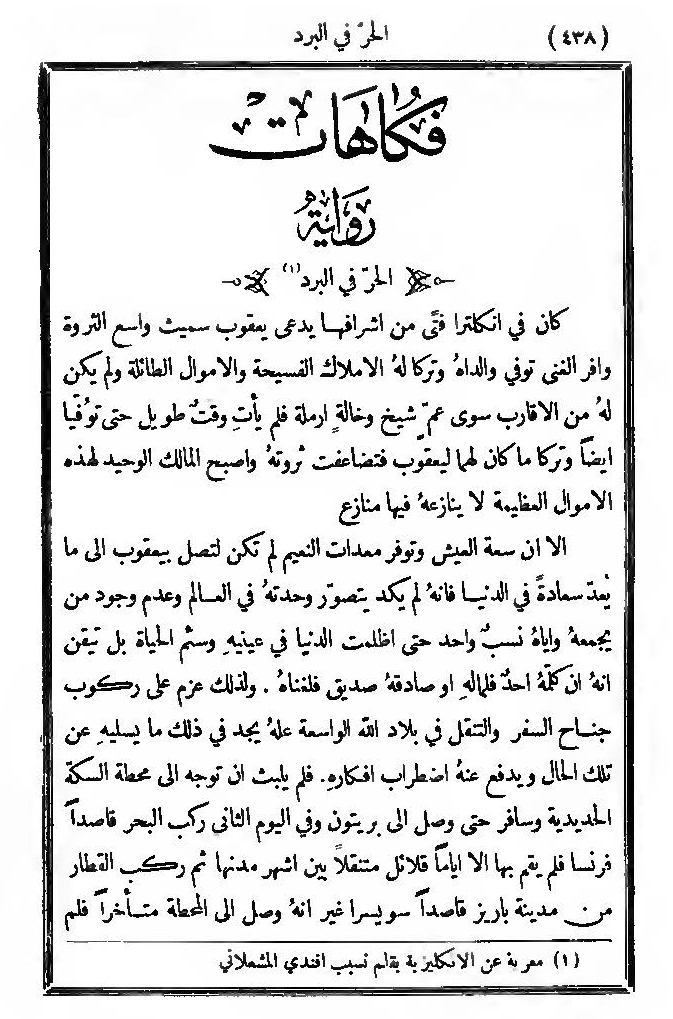 (٤٣٨) الحرّ في البرد
فكاهات
رواية
الحرّ في البرد (١)
كان في انكلترا فتًى من اشرافها يدعى يعقوب سميث واسع الثروة
وافر الغنى توفي والداهُ وتركا لهُ الاملاك الفسيحة والاموال الطائلة ولم يكن
لهُ من الاقارب سوى عمٍّ شيخ وخالةٍ ارملة فلم يأتِ وقتٌ طويل حتى توُفيا
ايضاً وتركا ما كان لهما ليعقوب فتضاعفت ثروتهُ واصبح المالك الوحيد لهذه
الاموال العظيمة لا ينازعهُ فيها منازع
الا ان سعة العيش وتوفر معدات النعيم لم تكن لتصل بيعقوب الى ما
يُعدّ سعادةً في الدنيا فانهُ لم يكد يتصوّر وحدتهُ في العالم وعدم وجود من
يجمعهُ واياهُ نسبٌ واحد حتى اظلمت الدنيا في عينيهِ وسئم الحياة بل تيقن
انهُ ان كلّمهُ احدٌ فلمالهِ او صادقهُ صديق فلغناهُ . ولذلك عزم على ركوب
جناح السفر والتنقل في بلاد الله الواسعة علهُ يجد في ذلك ما يسليهِ عن
تلك الحال ويدفع عنهُ اضطراب افكارهِ. فلم يلبث ان توجه الى محطة السكة
الحديدية وسافر حتى وصل الى بريتون وفي اليوم الثاني ركب البحر قاصداً
فرنسا فلم يقم بها الا اياماً قلائل متنقلاً بين اشهر مدنها ثم ركب القطار
من مدينة باريز قاصداً سويسرا غير انهُ وصل الى المحطة متأخراً فلم
(١) معربة عن الانكليزية بقلم نسيب افندي المشعلاني